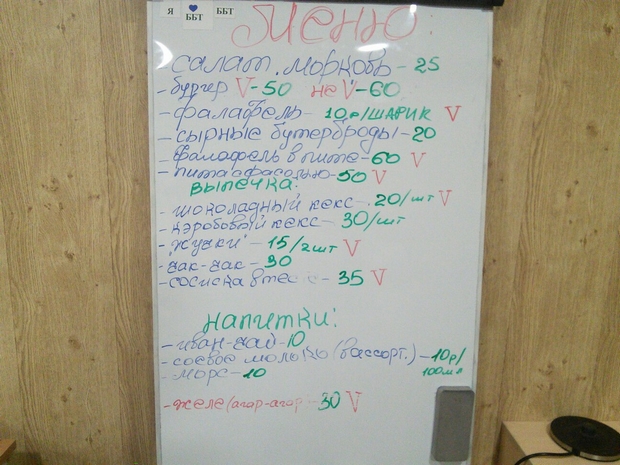 Я ♥ ББТ ББТ
Меню:
салат. морковь - 25
- бургер V - 50 не V - 60
- фалафель - 10р/ШАРИК V
- сырные бутерброды - 20
- фалафель в пите - 60 V
- пита с фасолью - 50 V
выпечка:
- шоколадный кекс - 20/шт V
- кэробовый кекс - 30/шт
- "жучки" - 15/2шт V
- чак-чак - 30
- сосиска в тесте - 35 V
напитки:
- иван-чай - 10
- соевое молоко (в ассорт.) - 10р/
100мл
- морс - 10
- желе (агар-агар - 30 V